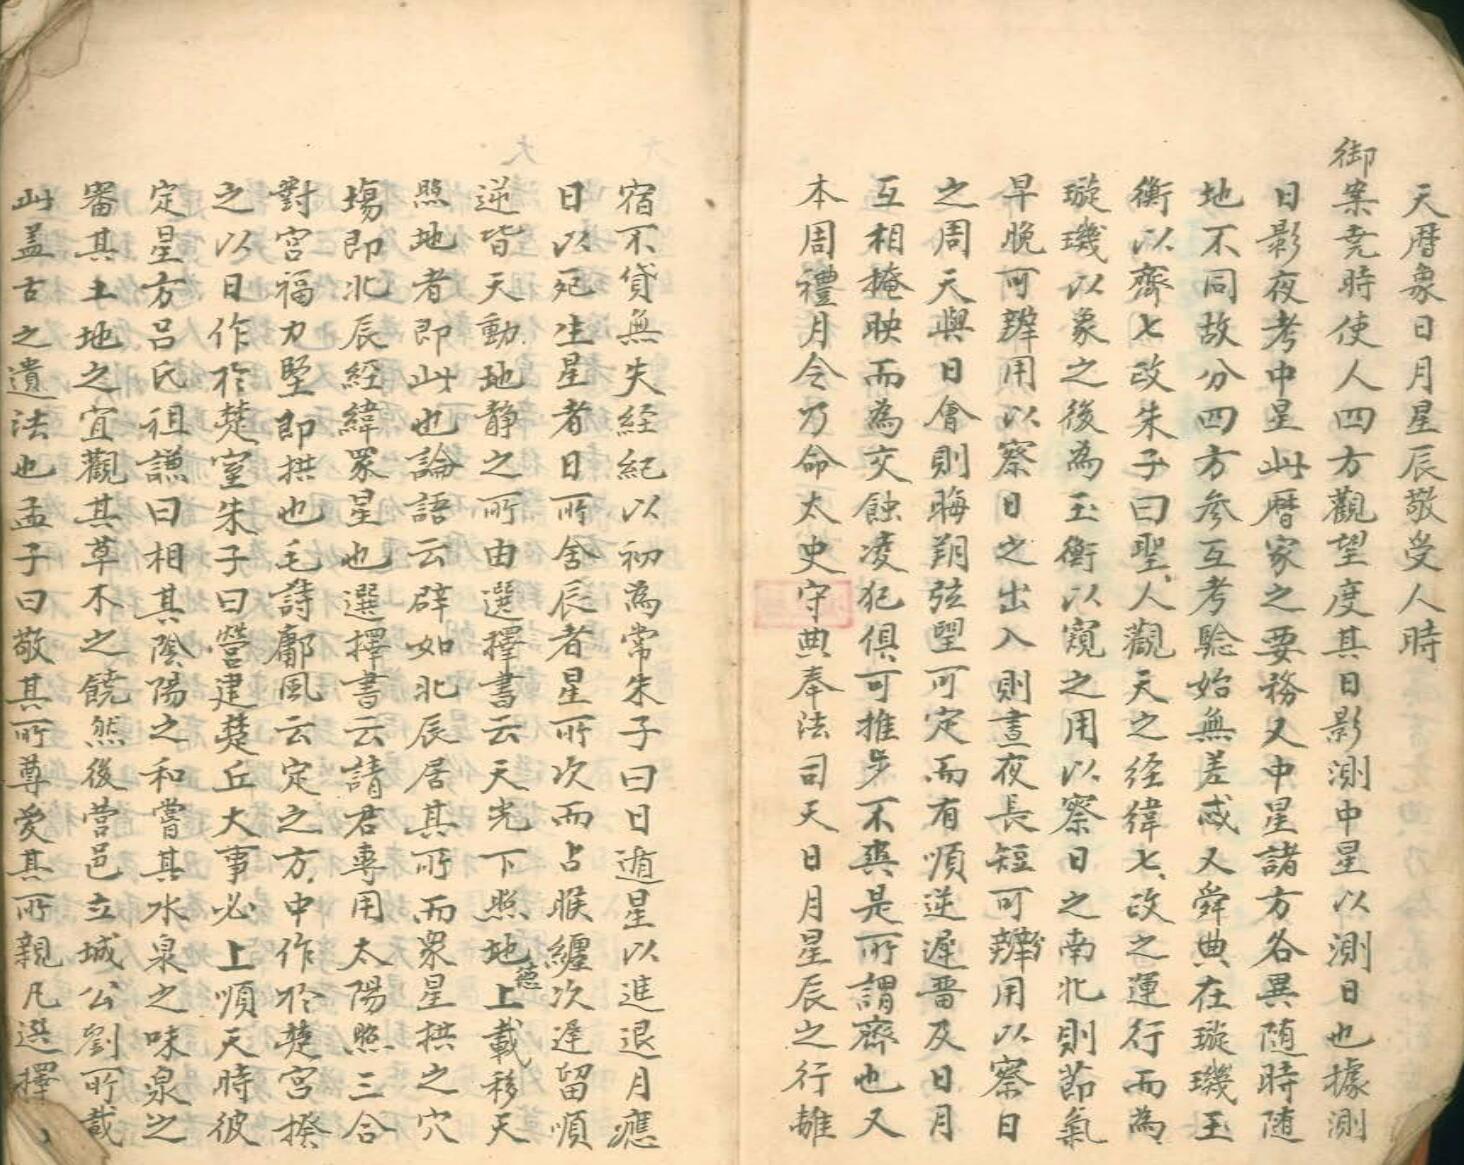 天暦象日月星辰敬受人時
御案尭時使人四方觀望度其日影測中星以測日也據測
日影夜考中星此暦家之要務又中星諸方各異随時随
地不同故分四方参互考驗始無差忒又舜典在璇璣玉
衡以齊七政朱子曰聖人觀天之経緯七政之運行而為
璇璣以象之後為玉衡以窺之用以察日之南北則節氣
早晚可辨用以察日之出入則晝夜長短可辨用以察日
之周天與日會則晦朔弦望可定而有順逆遲畱及日月
互相掩映而為交蝕凌犯俱可推步不爽是所謂齊也又
本周禮月令乃命太史守典奉法司天日月星辰之行離
宿不貸無失経紀以初為常朱子曰日遁星以進退月應
日以死生星者日所舍辰者星所次而占睺纏次遲留順
逆皆天動地静之所由選擇書云天光下照地德上載移天
照地者即此也論語云辟如北辰居其所而衆星拱之穴
塲即北辰経緯眾星也選擇書云請君專用太陽照三合
對宮福力堅即拱也毛詩鄘風云定之方中作於楚宮揆
之以日作於楚室朱子曰營建楚丘大事必上順天時彼
定星方呂氏祖謙曰相其陰陽之和嘗其水泉之味泉之
審其土地之宜觀其草木之饒然後營邑立城公劉所載
此盖古之遺法也孟子曰敬其所尊愛其所親凡選擇